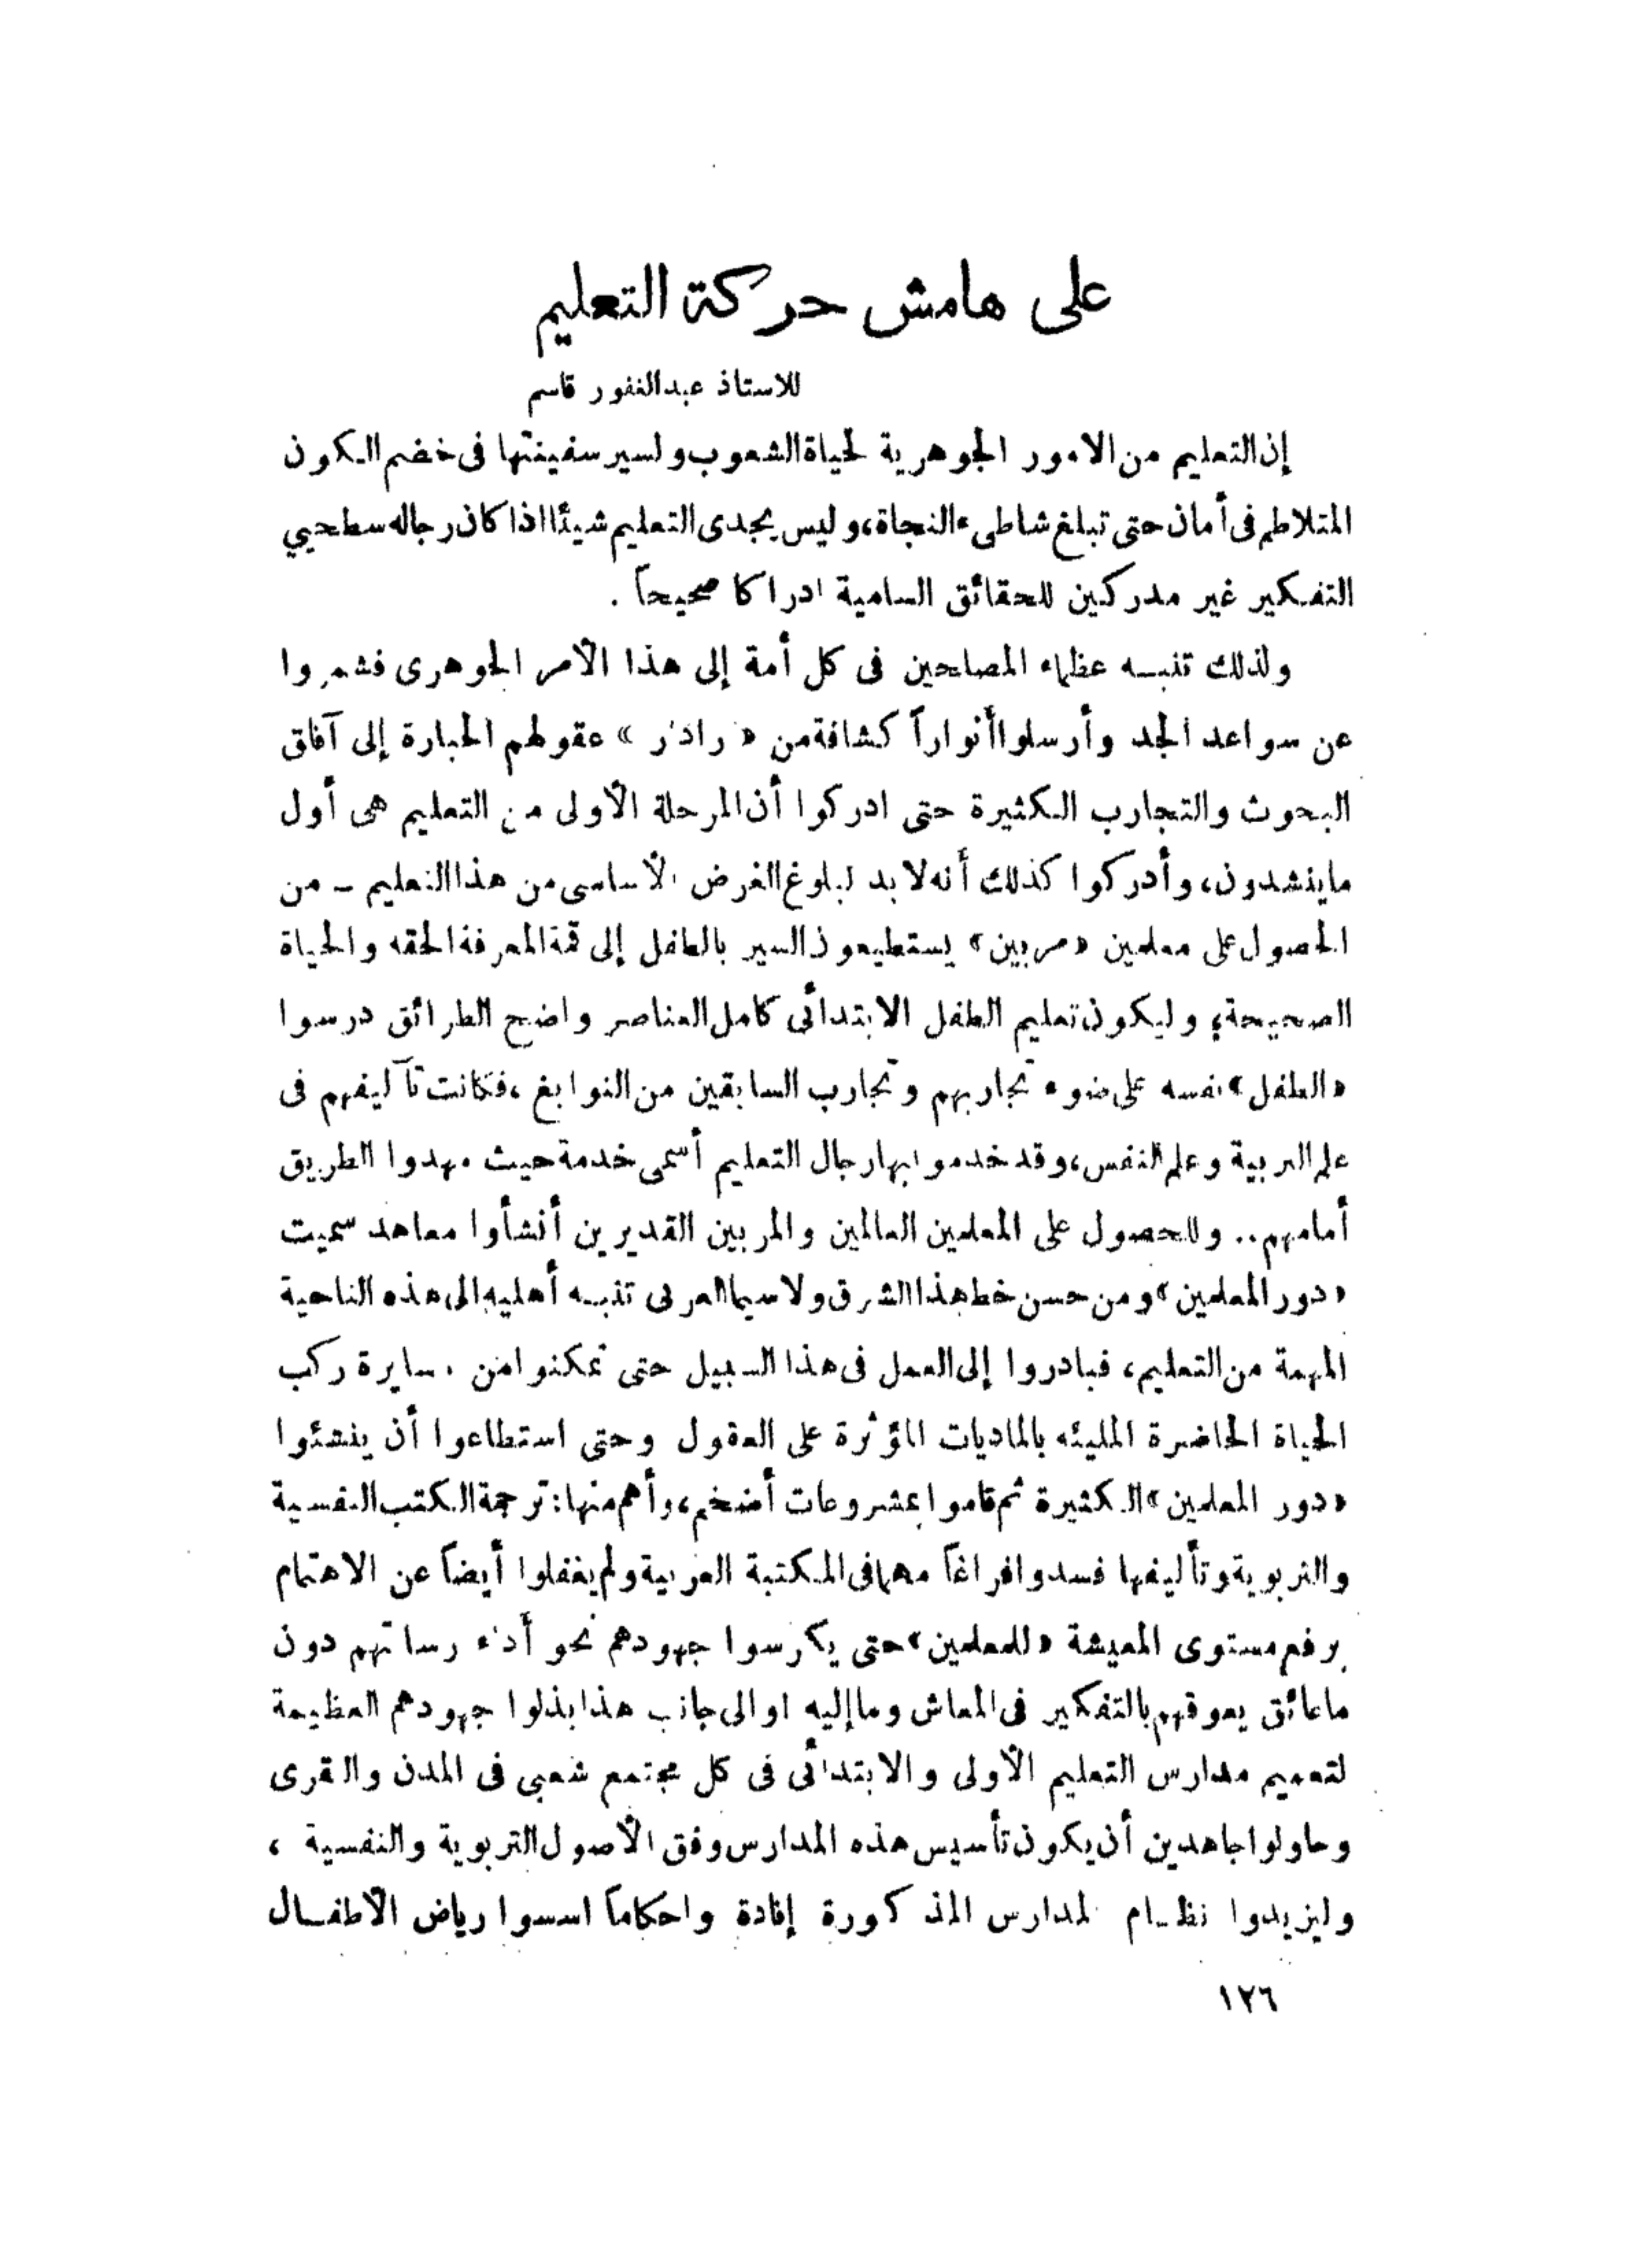 على هامش حركة التعليم
للاستاذ عبدالغفور قاسم
إن التعليم من الامور الجوهرية لحياة الشعوب ولسير سفينتها فى خضم الكون
المتلاطم فى أمان حتى تبلغ شاطىء النجاة، وليس يجدى التعليم شيئًا اذا كان رجاله سطحيي
التفكير غير مدركين للحقائق السامية ادراكا صحيحاً .
ولذلك تنبه عظماء المصلحين فى كل أمة إلى هذا الأمر الجوهرى فشمروا
عن سواعد الجد وأرسلوا أنواراً كشافة من « رادار » عقولهم الجبارة إلى آفاق
البحوث والتجارب الكثيرة حتى ادركوا أن المرحلة الأولى من التعليم هى أول
ما ينشدون، وأدركوا كذلك أنه لا بد لبلوغ الغرض الأساسى من هذا التعليم - من
الحصول على معلمين «مربين» يستطيعون السير بالطفل إلى قمة المعرفة الحقه والحياة
الصحيحة، وليكون تعليم الطفل الابتدائى كامل العناصر واضح الطرائق درسوا
«الطفل» نفسه على ضوء تجاربهم وتجارب السابقين من النوابغ، فكانت تآليفهم فى
علم التربية وعلم النفس، وقد خدموا بها رجال التعليم أسمى خدمة حيث مهدوا الطريق
أمامهم .. وللحصول على المعلمين العالمين والمربين القديرين أنشأوا معاهد سميت
«دور المعلمين» ومن حسن حظ هذا الشرق ولا سيما العربى تنبه أهليه الى هذه الناحية
المهمة من التعليم، فبادروا إلى العمل فى هذا السبيل حتى تمكنوا من مسايرة ركب
الحياة الحاضرة المليئه بالماديات المؤثرة على العقول وحتى استطاعوا أن ينشئوا
«دور المعلمين» الكثيرة ثم قاموا بمشروعات أضخم، وأهم منها: ترجمة الكتب النفسية
والتربوية وتأليفها فسدوا فراغاً مهما فى المكتبة العربية ولم يغفلوا أيضاً عن الاهتمام
برفع مستوى المعيشة «للمعلمين» حتى يكرسوا جهودهم نحو أداء رسالتهم دون
ما عائق يعوقهم بالتفكير فى المعاش وما إليه او الى جانب هذا بذلوا جهودهم العظيمة
لتعميم مدارس التعليم الأولى والابتدائى فى كل مجتمع شعبى فى المدن والقرى
وحاولوا جاهدين أن يكون تأسيس هذه المدارس وفق الأصول التربوية والنفسية ،
وليزيدوا نظام المدارس المذكورة إفادة واحكاماً اسسوا رياض الأطفال
١٢٦